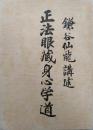 鎌谷仙龍講述
正法眼蔵身心学道